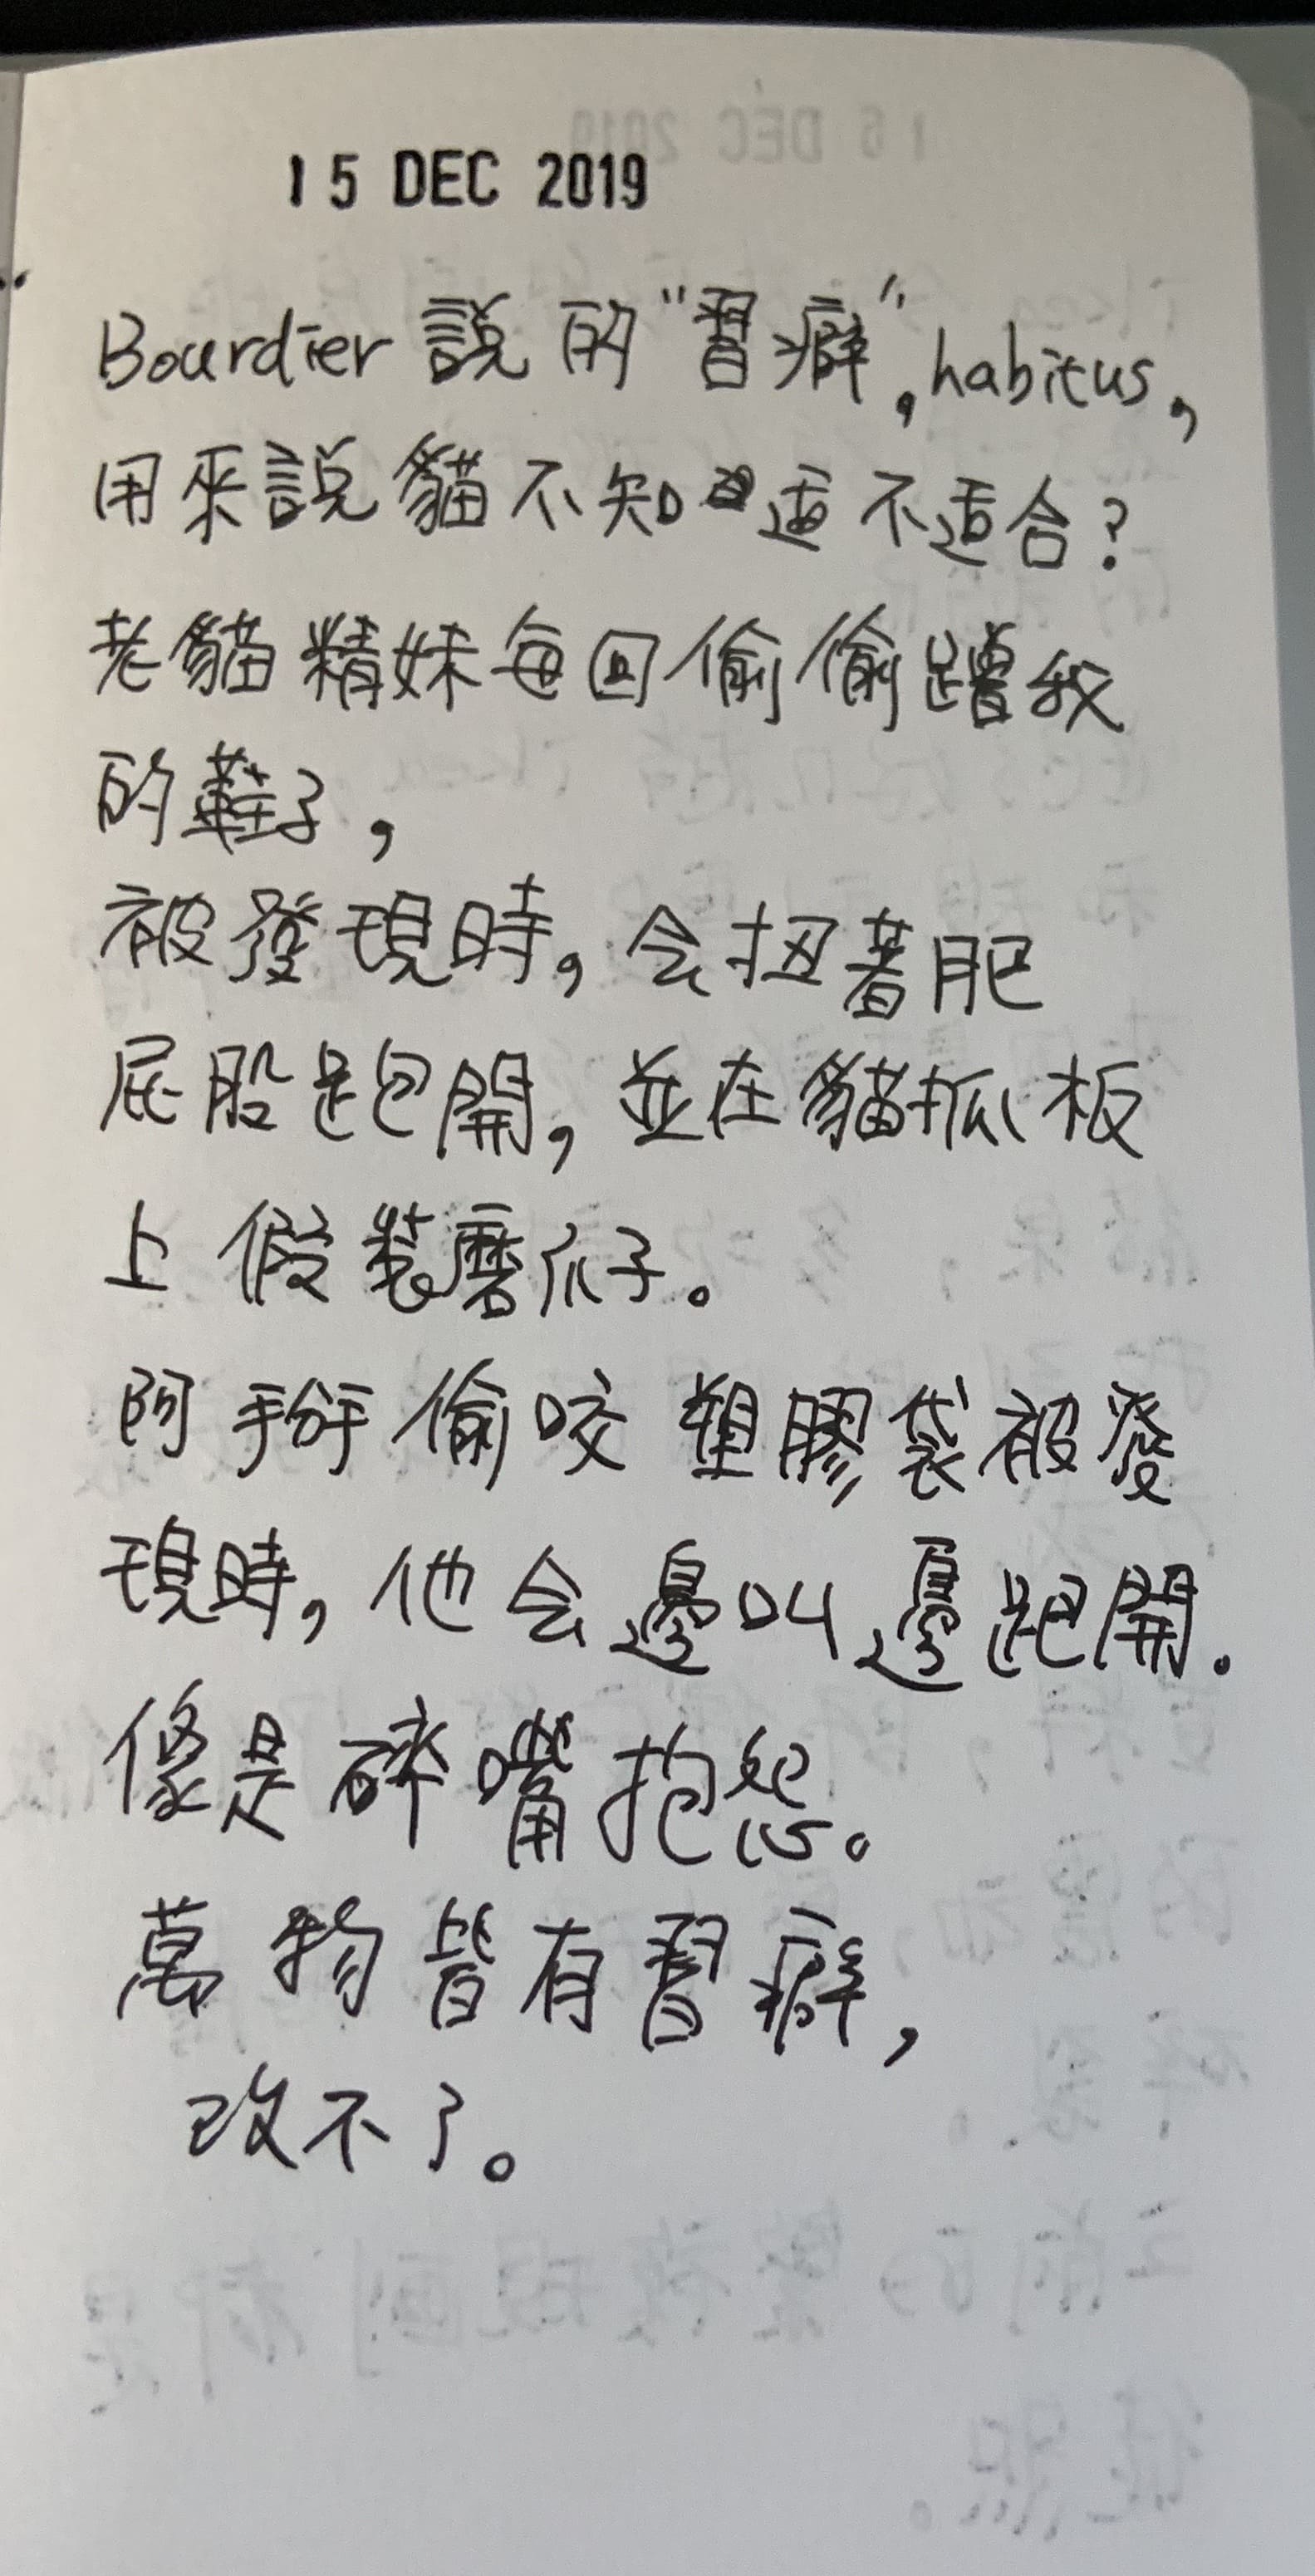 15 DEC 2019
Bourdier 說的"習癖",habitus,
用來說貓不知道適不適合?
老貓精妹每回偷偷蹧我
的鞋子,
被發現時,会扭著肥
屁股跑開,並在貓抓板
上假裝磨爪子。
阿掰偷咬塑膠袋被發
現時,他会邊叫邊跑開.
像是碎嘴抱怨。
萬物皆有習癖,
改不了。